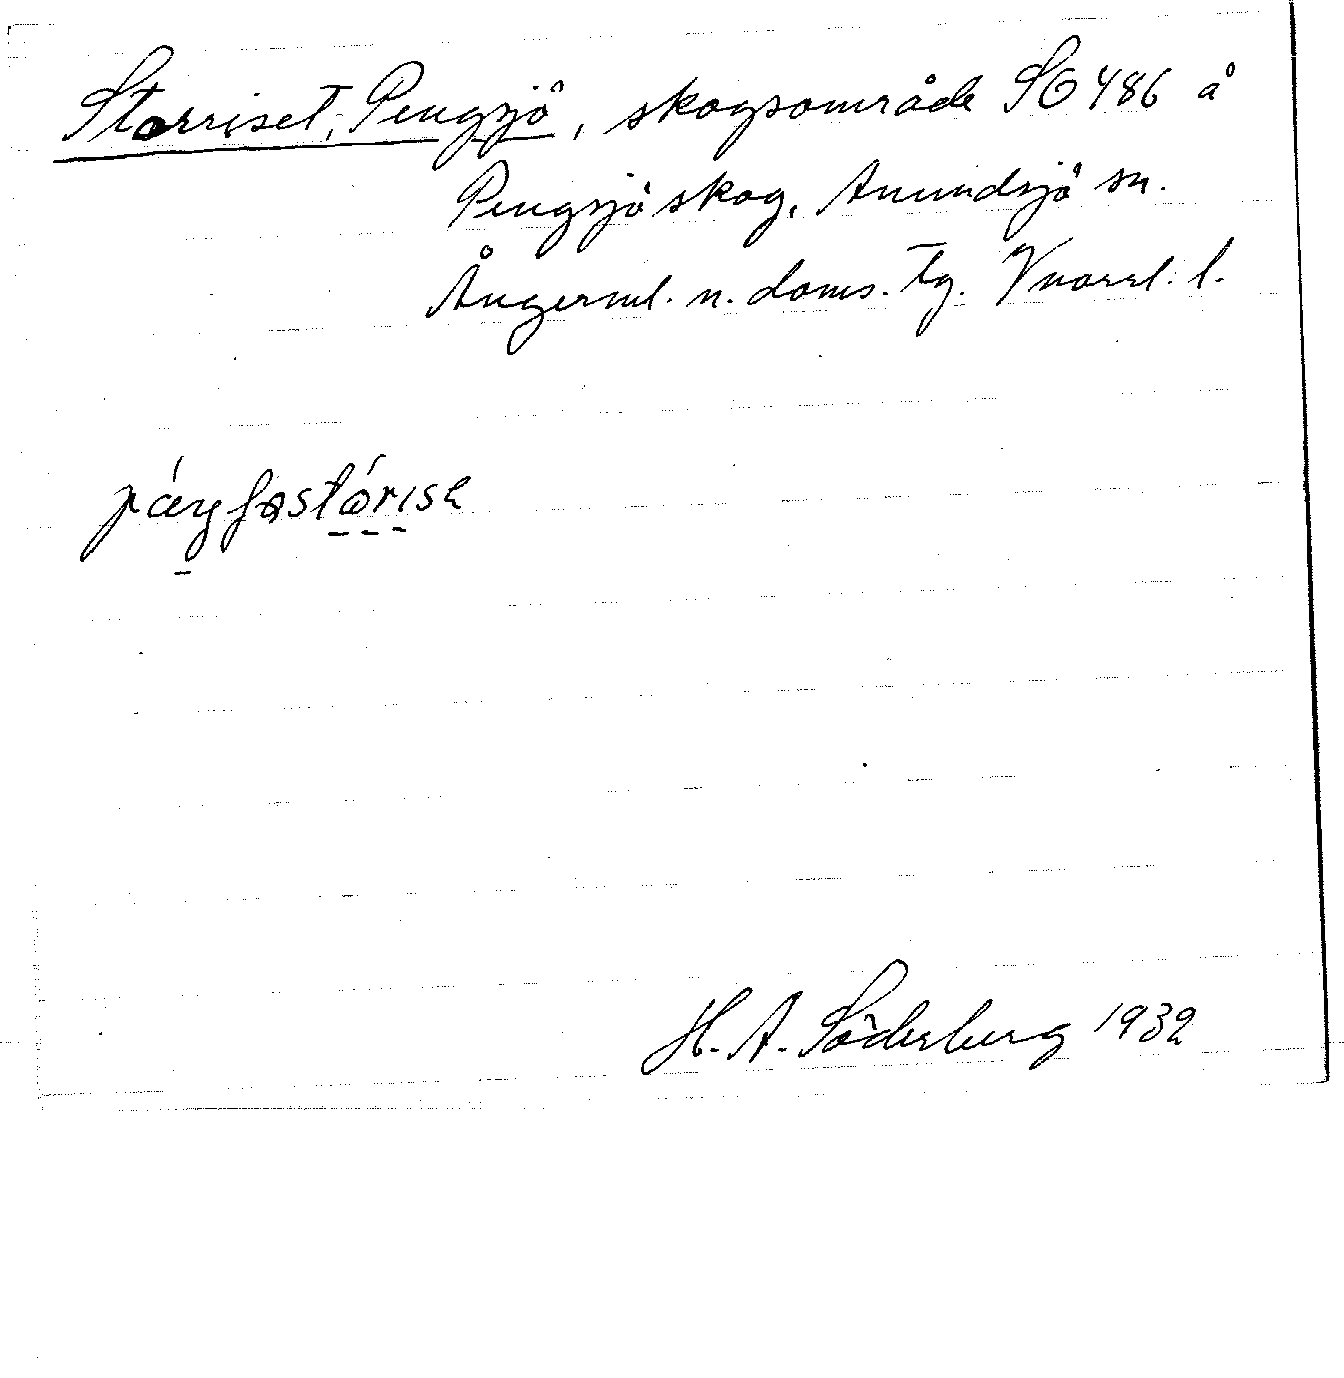 Storriset, Pengsjö, skogsområde SO 486 å
Pengsjö skog, Anundsjö sn.
Ångerml. n. doms. tg. Vnorrl. l.
H. A. Söderberg 1932